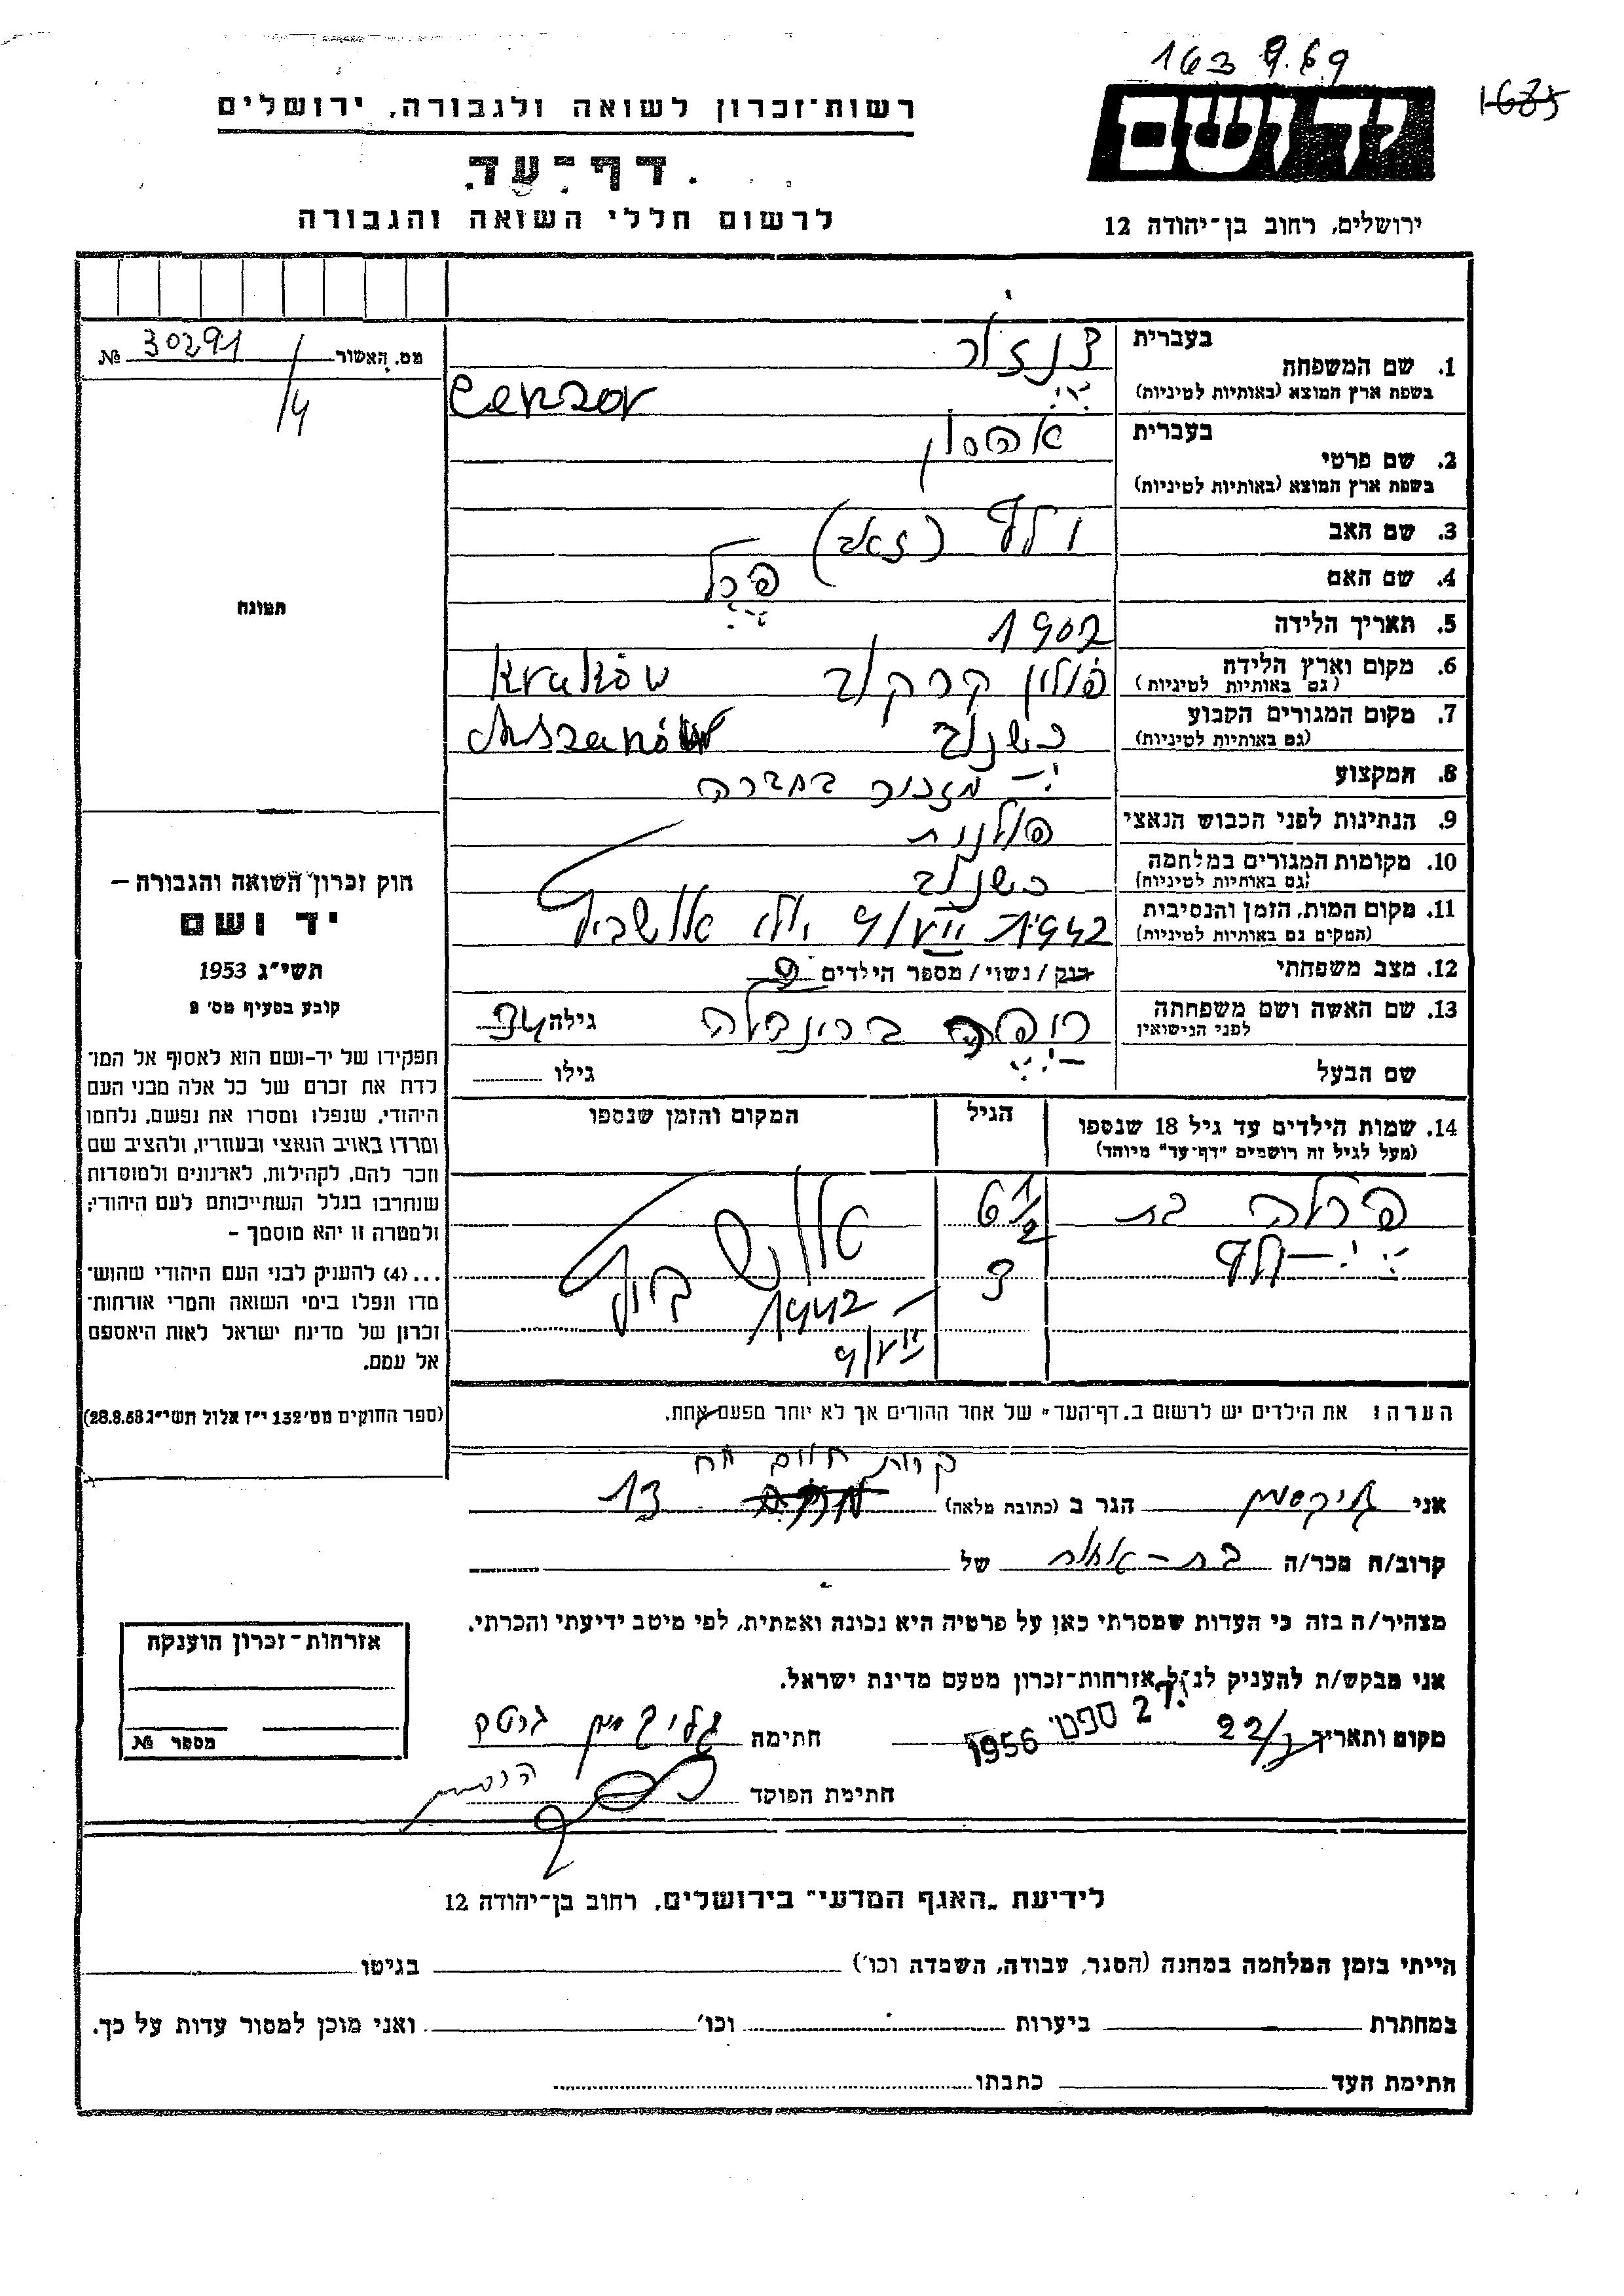 163 9.69
1635
יד ושם
רשות־זכרון לשואה ולגבורה, ירושלים
דף־עד
לרשום חללי השואה והגבורה
ירושלים, רחוב בן־יהודה 12
מס. האשור № 30291
1. שם המשפחה
בעברית
צנזור
בשפת ארץ המוצא (באותיות לטיניות)
Cenzor
2. שם פרטי
בעברית
אהרון
בשפת ארץ המוצא (באותיות לטיניות)
3. שם האב
וולף (זאב)
4. שם האם
פרל
5. תאריך הלידה
1902
6. מקום וארץ הלידה
(גם באותיות לטיניות)
פולין קרקוב Kraków
7. מקום המגורים הקבוע
(גם באותיות לטיניות)
כשנוב Chrzanów
8. המקצוע
מזכיר בחברה
9. הנתינות לפני הכבוש הנאצי
פולנית
10. מקומות המגורים במלחמה
(גם באותיות לטיניות)
כשנוב
11. מקום המות, הזמן והנסיבות
(המקום גם באותיות לטיניות)
1942 יולי אושביץ
12. מצב משפחתי
רנק / נשוי / מספר הילדים 2
13. שם האשה ושם משפחתה
לפני הנישואין
גילה 34
שם הבעל
גילו
14. שמות הילדים עד גיל 18 שנספו
(מעל לגיל זה רושמים "דף־עד" מיוחד)
הגיל
המקום והזמן שנספו
פרלה בת 6 1/2
וולף 3
אושביץ
1942
תמונה
חוק זכרון השואה והגבורה –
יד ושם
תשי"ג 1953
קובע בסעיף מס' 2
תפקידו של יד-ושם הוא לאסוף אל המו־
לדת את זכרם של כל אלה מבני העם
היהודי, שנפלו ומסרו את נפשם, נלחמו
ומרדו באויב הנאצי ובעוזריו, ולהציב שם
וזכר להם, לקהילות, לארגונים ולמוסדות
שנחרבו בגלל השתייכותם לעם היהודי;
ולמטרה זו יהא מוסמך –
...(4) להעניק לבני העם היהודי שהוש־
מדו ונפלו בימי השואה והמרי אזרחות־
זכרון של מדינת ישראל לאות היאספם
אל עמם.
(ספר החוקים מס' 132 י"ז אלול תשי"ג 28.8.53)
הערה: את הילדים יש לרשום ב"דף־העד" של אחד ההורים אך לא יותר מפעם אחת.
קרית חיים
אני הגר ב (כתובת מלאה) 13
קרוב/ה מכר/ה של
מצהיר/ה בזה כי העדות שמסרתי כאן על פרטיה היא נכונה ואמתית, לפי מיטב ידיעתי והכרתי.
אני מבקש/ת להעניק לנ"ל אזרחות־זכרון מטעם מדינת ישראל.
מקום ותאריך 22/7 27 ספט' 1956 חתימה
חתימת הפוקד
אזרחות־זכרון הוענקה
מספר №
לידיעת "האגף המדעי" בירושלים, רחוב בן־יהודה 12
הייתי בזמן המלחמה במחנה (הסגר, עבודה, השמדה וכו') בגיטו
במחתרת ביערות וכו' ואני מוכן למסור עדות על כך.
חתימת העד כתבתו